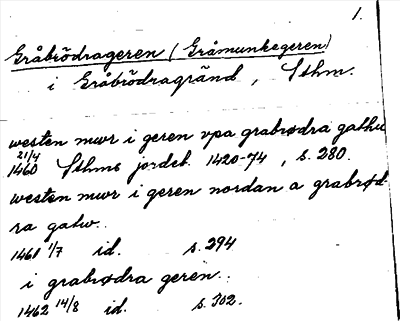 1.
Gråbrödrageren (Gråmunkegeren)
i Gråbrödragränd, Sthm.
westen mwr i geren vpa grabrødra gathu
21/4
1460 Sthms jordeb. 1420-74, s. 280.
westen mwr i geren nordan a grabrød-
ra gatw.
1461 1/7 id. s. 294
i grabrødra geren.
1462 14/8 id. s. 302.